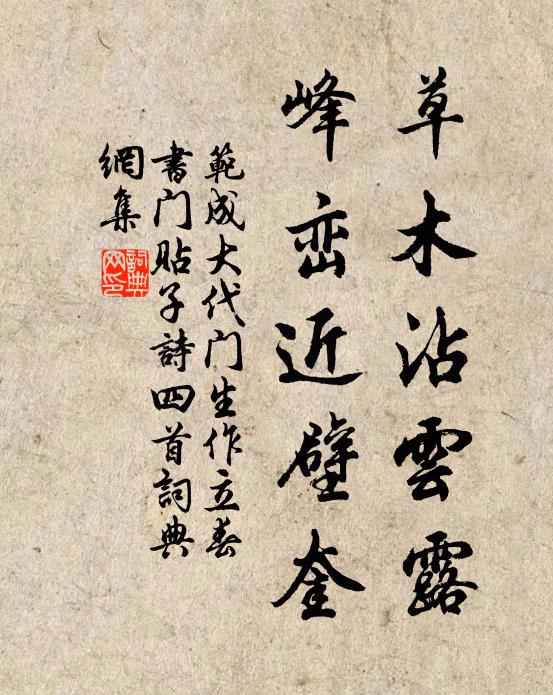 草木沾雲露
峰峦近壁奎
範成大代门生作立春
書门貼子詩四首詞典
網集
詞典
网印